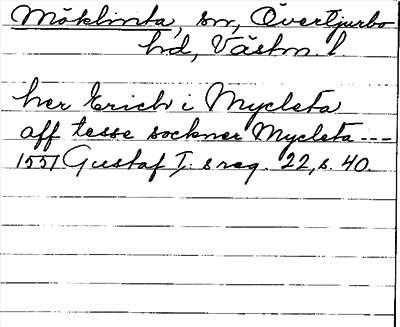 Möklinta, sn, Övertjurbo
hd, Västm. l.
her Erich i Mycleta
aff tesse sockner Mycleta ---
1551 Gustaf I: s reg. 22, s. 40.